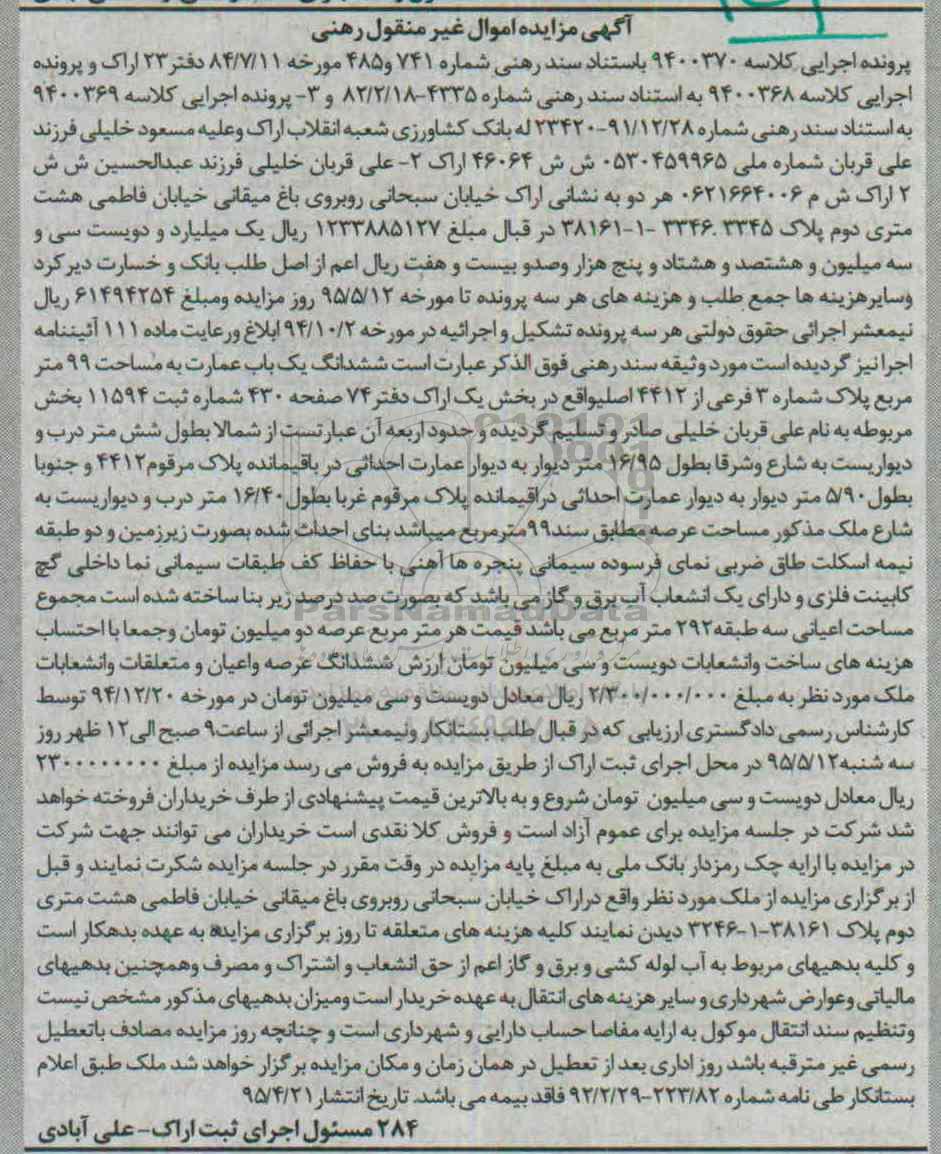 آگهی مزایده اموال غیر منقول رهنی
پرونده اجرایی کلاسه ۹۴۰۰۳۷۰ باستناد سند رهنی شماره ۷۴۱ و۴۸۵ مورخه ۸۴/۷/۱۱ دفتر۲۳ اراک و پرونده
اجرایی کلاسه ۹۴۰۰۳۶۸ به استناد سند رهنی شماره ۴۳۳۵-۸۲/۲/۱۸ و ۳- پرونده اجرایی کلاسه ۹۴۰۰۳۶۹
به استناد سند رهنی شماره ۹۱/۱۲/۲۸-۲۳۴۲۰ له بانک کشاورزی شعبه انقلاب اراک وعلیه مسعود خلیلی فرزند
علی قربان شماره ملی ۰۵۳۰۴۵۹۹۶۵ ش ش ۴۶۰۶۴ اراک ۲- علی قربان خلیلی فرزند عبدالحسین ش ش
۲ اراک ش م ۰۶۲۱۶۶۴۰۰۶ هر دو به نشانی اراک خیابان سبحانی روبروی باغ میقانی خیابان فاطمی هشت
متری دوم پلاک ۳۳۴۵ .۳۳۴۶ -۱-۳۸۱۶۱ در قبال مبلغ ۱۲۳۳۸۸۵۱۲۷ ریال یک میلیارد و دویست سی و
سه میلیون و هشتصد و هشتاد و پنج هزار وصدو بیست و هفت ریال اعم از اصل طلب بانک و خسارت دیرکرد
وسایرهزینه ها جمع طلب و هزینه های هر سه پرونده تا مورخه ۹۵/۵/۱۲ روز مزایده ومبلغ ۶۱۴۹۴۲۵۴ ریال
نیمعشر اجرائی حقوق دولتی هر سه پرونده تشکیل و اجرائیه در مورخه ۹۴/۱۰/۲ ابلاغ ورعایت ماده ۱۱۱ آئیننامه
اجرا نیز گردیده است مورد وثیقه سند رهنی فوق الذکر عبارت است ششدانگ یک باب عمارت به مساحت ۹۹ متر
مربع پلاک شماره ۳ فرعی از ۴۴۱۲ اصلیواقع در بخش یک اراک دفتر ۷۴ صفحه ۴۳۰ شماره ثبت ۱۱۵۹۴ بخش
مربوطه به نام علی قربان خلیلی صادر و تسلیم گردیده و حدود اربعه آن عبارتست از شمالا بطول شش متر درب و
دیواریست به شارع وشرقا بطول ۱۶/۹۵ متر دیوار به دیوار عمارت احداثی در باقیمانده پلاک مرقوم۴۴۱۲ و جنوبا
بطول۵/۹۰ متر دیوار به دیوار عمارت احداثی دراقیمانده پلاک مرقوم غربا بطول۱۶/۴۰ متر درب و دیواریست به
شارع ملک مذکور مساحت عرصه مطابق سند۹۹مترمربع میباشد بنای احداث شده بصورت زیرزمین و دو طبقه
نیمه اسکلت طاق ضربی نمای فرسوده سیمانی پنجره ها آهنی با حفاظ کف طبقات سیمانی نما داخلی گچ
کابینت فلزی و دارای یک انشعاب آب برق و گاز می باشد که بصورت صد درصد زیر بنا ساخته شده است مجموع
مساحت اعیانی سه طبقه۲۹۲ متر مربع می باشد قیمت هر متر مربع عرصه دو میلیون تومان وجمعا با احتساب
هزینه های ساخت وانشعابات دویست و سی میلیون تومان ارزش ششدانگ عرصه واعیان و متعلقات وانشعابات
ملک مورد نظر به مبلغ ۲/۳۰۰/۰۰۰/۰۰۰ ریال معادل دویست و سی میلیون تومان در مورخه ۹۴/۱۲/۲۰ توسط
کارشناس رسمی دادگستری ارزیابی که در قبال طلب بستانکار ونیمعشر اجرائی از ساعت۹ صبح الی۱۲ ظهر روز
سه شنبه۹۵/۵/۱۲ در محل اجرای ثبت اراک از طریق مزایده به فروش می رسد مزایده از مبلغ ۲۳۰۰۰۰۰۰۰۰
ریال معادل دویست و سی میلیون تومان شروع و به بالاترین قیمت پیشنهادی از طرف خریداران فروخته خواهد
شد شرکت در جلسه مزایده برای عموم آزاد است و فروش کلا نقدی است خریداران می توانند جهت شرکت
در مزایده با ارایه چک رمزدار بانک ملی به مبلغ پایه مزایده در وقت مقرر در جلسه مزایده شکرت نمایند و قبل
از برگزاری مزایده از ملک مورد نظر واقع دراراک خیابان سبحانی روبروی باغ میقانی خیابان فاطمی هشت متری
دوم پلاک ۳۸۱۶۱-۱-۳۲۴۶ دیدن نمایند کلیه هزینه های متعلقه تا روز برگزاری مزایده به عهده بدهکار است
و کلیه بدهیهای مربوط به آب لوله کشی و برق و گاز اعم از حق انشعاب و اشتراک و مصرف وهمچنین بدهیهای
مالیاتی وعوارض شهرداری و سایر هزینه های انتقال به عهده خریدار است ومیزان بدهیهای مذکور مشخص نیست
وتنظیم سند انتقال موکول به ارایه مفاصا حساب دارایی و شهرداری است و چنانچه روز مزایده مصادف باتعطیل
رسمی غیر مترقبه باشد روز اداری بعد از تعطیل در همان زمان و مکان مزایده برگزار خواهد شد ملک طبق اعلام
بستانکار طی نامه شماره ۲۲۳/۸۲-۹۲/۲/۲۹ فاقد بیمه می باشد. تاریخ انتشار ۹۵/۴/۲۱
۲۸۴ مسئول اجرای ثبت اراک- علی آبادی
ParsNamadData